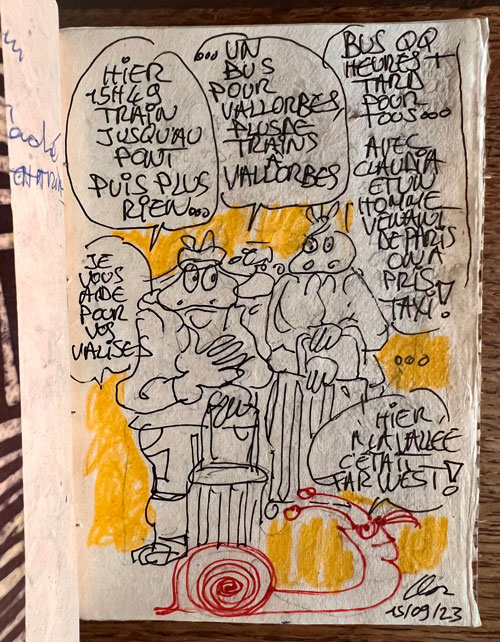 HIER
15H49
TRAIN
JUSQU'AU
PONT
PUIS PLUS
RIEN...
...UN
BUS
POUR
VALLORBES
PLUS DE
TRAINS
À
VALLORBES
BUS QQ
HEURES +
TARD
POUR
TOUS...
AVEC
CLAUDIA
ET UN
HOMME
VENANT
DE PARIS
ON A
PRIS
TAXI!
JE
VOUS
AIDE
POUR
VOS
VALISES
...
HIER,
À LA VALLÉE
C'ÉTAIT
FAR WEST!
15/09/23